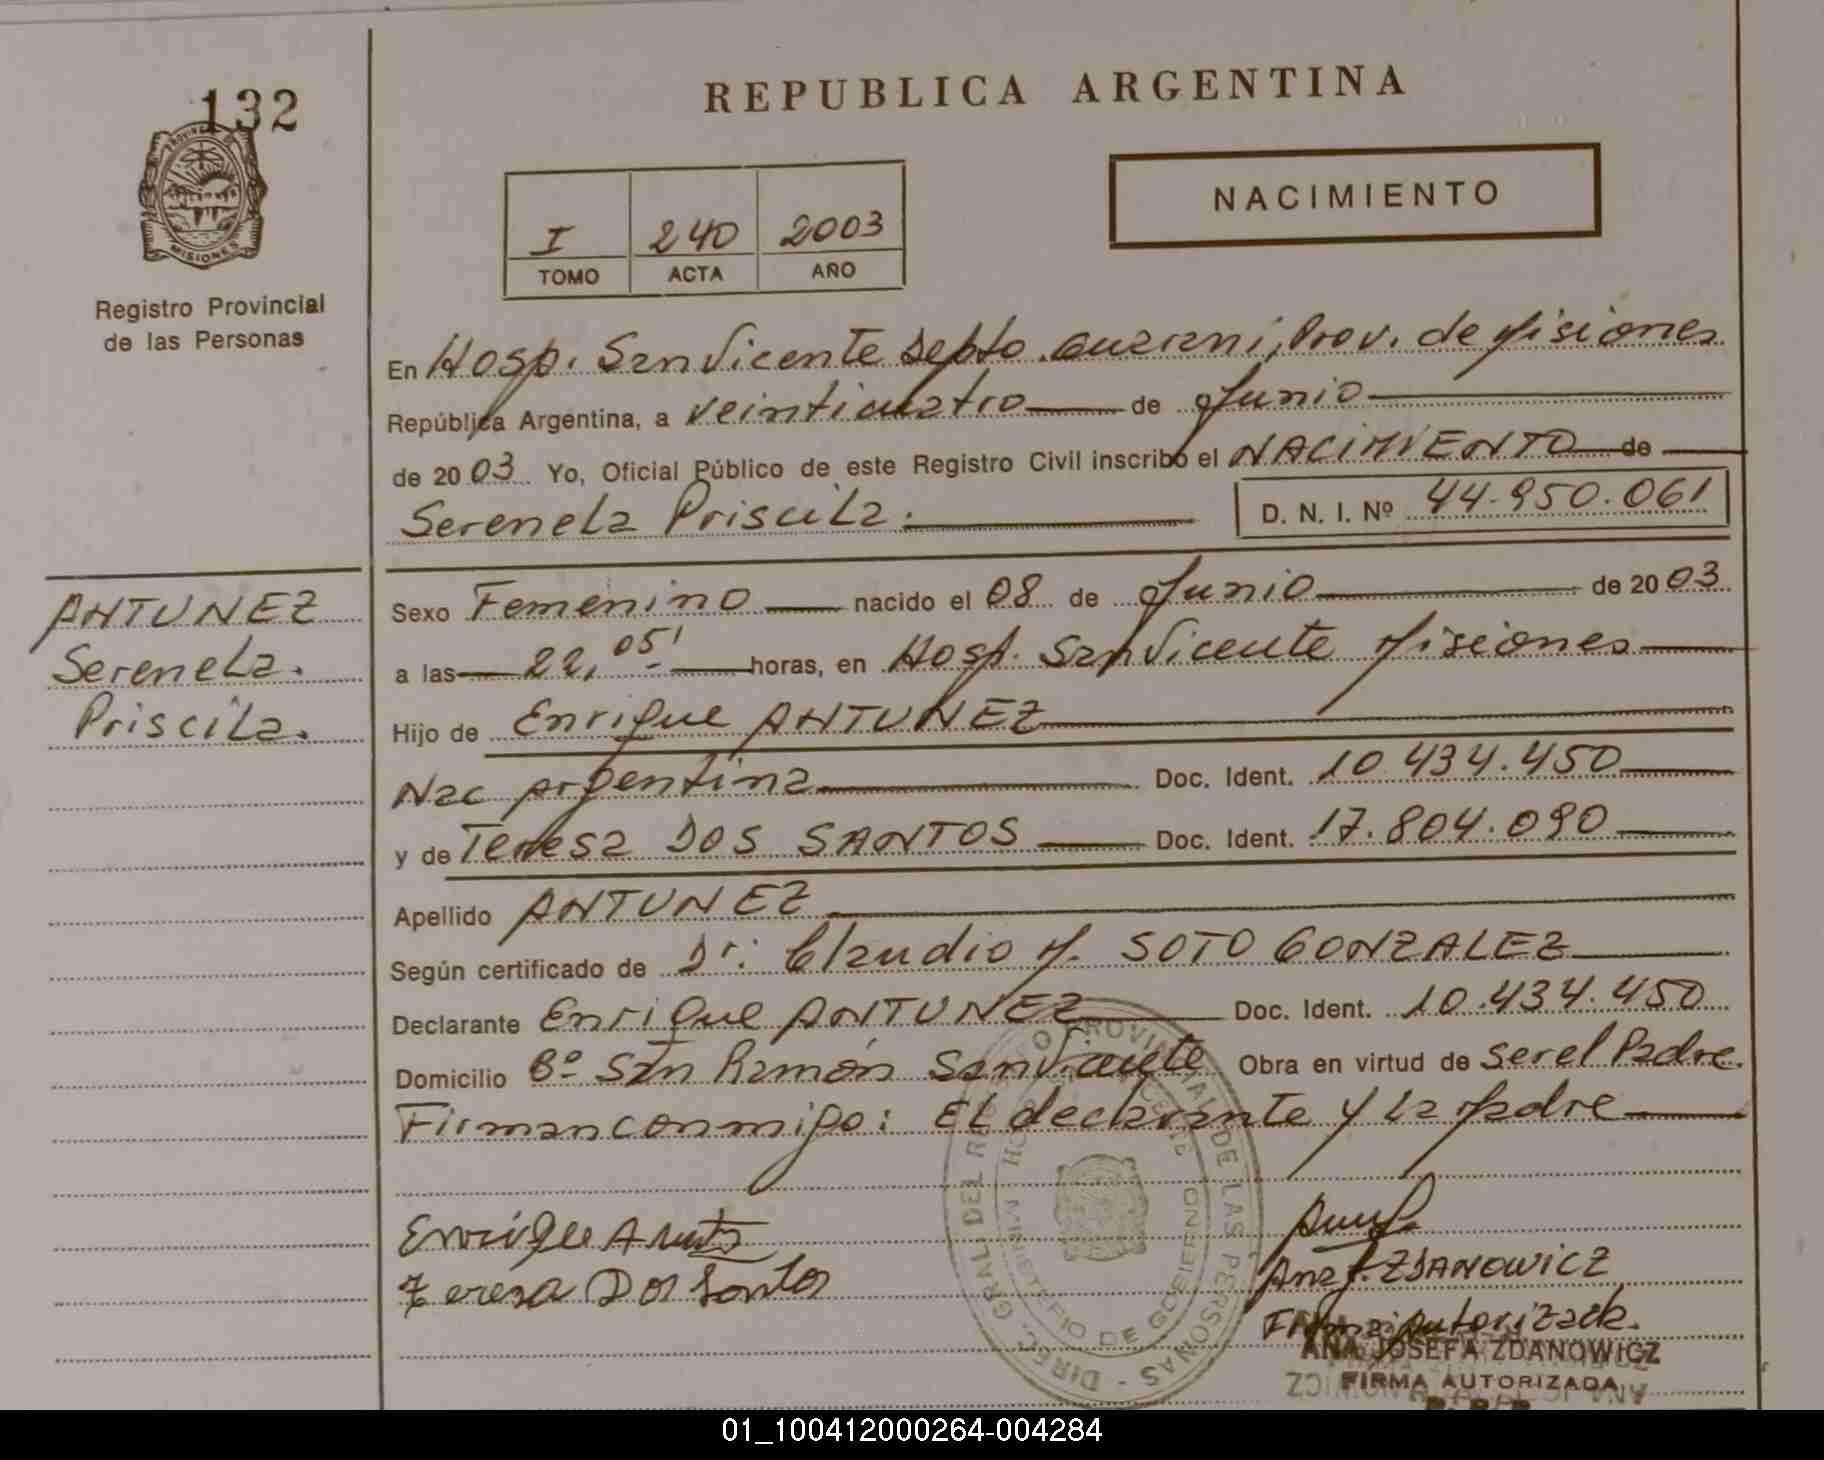 132
PROVINCIA DE
MISIONES
Registro Provincial
de las Personas
REPUBLICA ARGENTINA
I 240 2003
TOMO ACTA AÑO
NACIMIENTO
En Hosp. San Vicente Depto. Guarani, Prov. de Misiones
República Argentina, a veinticuatro de Junio
de 2003 Yo, Oficial Público de este Registro Civil inscribo el NACIMIENTO de
Serenela Priscila. D. N. I. Nº 44.950.061
ANTUNEZ
Serenela.
Priscila.
Sexo Femenino nacido el 08 de Junio de 2003
a las 22,05' horas, en Hosp. San Vicente Misiones
Hijo de Enrique ANTUNEZ
Nac Argentina Doc. Ident. 10.434.450
y de Teresa DOS SANTOS Doc. Ident. 17.804.090
Apellido ANTUNEZ
Según certificado de Dr: Claudio M. SOTO GONZALEZ
Declarante Enrique ANTUNEZ Doc. Ident. 10.434.450
Domicilio Bº San Ramón San Vicente Obra en virtud de ser el Padre.
Firman conmigo: El declarante y la Madre
Enrique
Teresa Dos Santos
Ana J. ZDANOWICZ
Firma Autorizada.
ANA JOSEFA ZDANOWICZ
FIRMA AUTORIZADA
R.P.P.
DIREC. GRAL. DEL REGISTRO PROVINCIAL DE LAS PERSONAS
MINISTERIO DE GOBIERNO
01_100412000264-004284